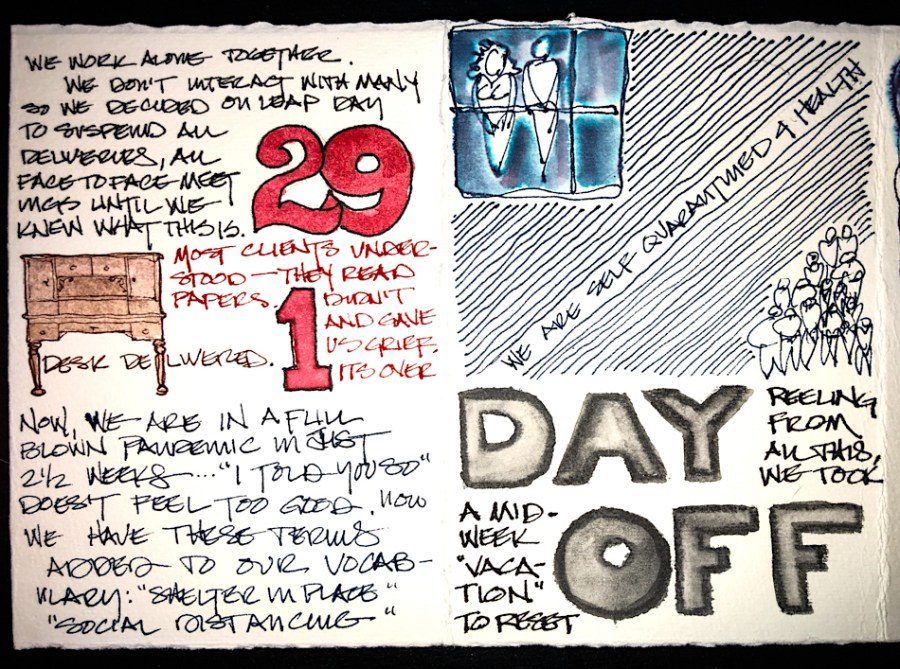 WE WORK ALONE TOGETHER.
WE DON'T INTERACT WITH MANY
SO WE DECIDED ON LEAP DAY
TO SUSPEND ALL
DELIVERIES, ALL
FACE TO FACE MEET
INGS UNTIL WE
KNEW WHAT THIS IS.
29
MOST CLIENTS UNDER-
STOOD — THEY READ
PAPERS.
1
DIDN'T
AND GAVE
US GRIEF.
ITS OVER
DESK DELIVERED.
NOW, WE ARE IN A FULL
BLOWN PANDEMIC IN JUST
2 1/2 WEEKS... "I TOLD YOU SO"
DOESN'T FEEL TOO GOOD. NOW
WE HAVE THESE TERMS
ADDED TO OUR VOCAB-
ULARY: "SHELTER IN PLACE"
"SOCIAL DISTANCING"
WE ARE SELF QUARANTINED 4 HEALTH
DAY
OFF
REELING
FROM
ALL THIS,
WE TOOK
A MID-
WEEK
"VACA-
TION"
TO RESET